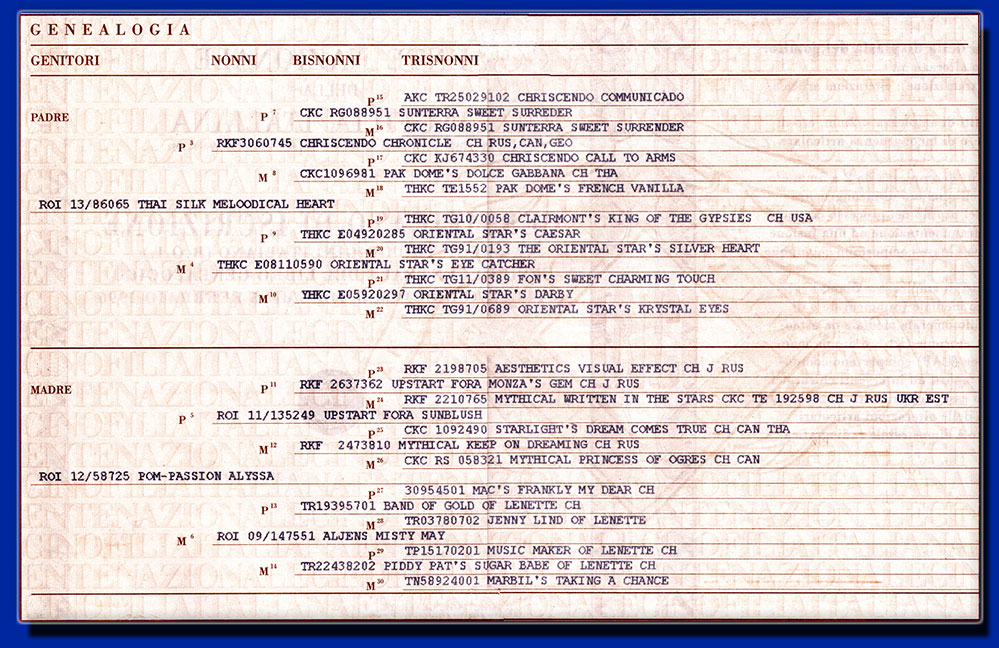 GENEALOGIA
GENITORI NONNI BISNONNI TRISNONNI
P 15 AKC TR25029102 CHRISCENDO COMMUNICADO
PADRE P 7 CKC RG088951 SUNTERRA SWEET SURREDER
M 16 CKC RG088951 SUNTERRA SWEET SURRENDER
P 3 RKF3060745 CHRISCENDO CHRONICLE CH RUS,CAN,GEO
P 17 CKC KJ674330 CHRISCENDO CALL TO ARMS
M 8 CKC1096981 PAK DOME'S DOLCE GABBANA CH THA
M 18 THKC TE1552 PAK DOME'S FRENCH VANILLA
ROI 13/86065 THAI SILK MELOODICAL HEART
P 19 THKC TG10/0058 CLAIRMONT'S KING OF THE GYPSIES CH USA
P 9 THKC E04920285 ORIENTAL STAR'S CAESAR
M 20 THKC TG91/0193 THE ORIENTAL STAR'S SILVER HEART
M 4 THKC E08110590 ORIENTAL STAR'S EYE CATCHER
P 21 THKC TG11/0389 FON'S SWEET CHARMING TOUCH
M 10 YHKC E05920297 ORIENTAL STAR'S DARBY
M 22 THKC TG91/0689 ORIENTAL STAR'S KRYSTAL EYES
P 23 RKF 2198705 AESTHETICS VISUAL EFFECT CH J RUS
MADRE P 11 RKF 2637362 UPSTART FORA MONZA'S GEM CH J RUS
M 24 RKF 2210765 MYTHICAL WRITTEN IN THE STARS CKC TE 192598 CH J RUS UKR EST
P 5 ROI 11/135249 UPSTART FORA SUNBLUSH
P 25 CKC 1092490 STARLIGHT'S DREAM COMES TRUE CH CAN THA
M 12 RKF 2473810 MYTHICAL KEEP ON DREAMING CH RUS
M 26 CKC RS 058321 MYTHICAL PRINCESS OF OGRES CH CAN
ROI 12/58725 POM-PASSION ALYSSA
P 27 30954501 MAC'S FRANKLY MY DEAR CH
P 13 TR19395701 BAND OF GOLD OF LENETTE CH
M 28 TR03780702 JENNY LIND OF LENETTE
M 6 ROI 09/147551 ALJENS MISTY MAY
P 29 TP15170201 MUSIC MAKER OF LENETTE CH
M 14 TR22438202 PIDDY PAT'S SUGAR BABE OF LENETTE CH
M 30 TN58924001 MARBIL'S TAKING A CHANCE